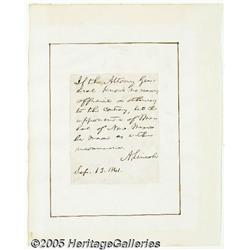 If the Attorney Gen-
eral knows no reason
or other way
to the contrary, let the
appointment of Mar-
shal of New Mexico
be made as within
recommended.
A. Lincoln
Sep. 13. 1861.
© 2005 HeritageGalleries